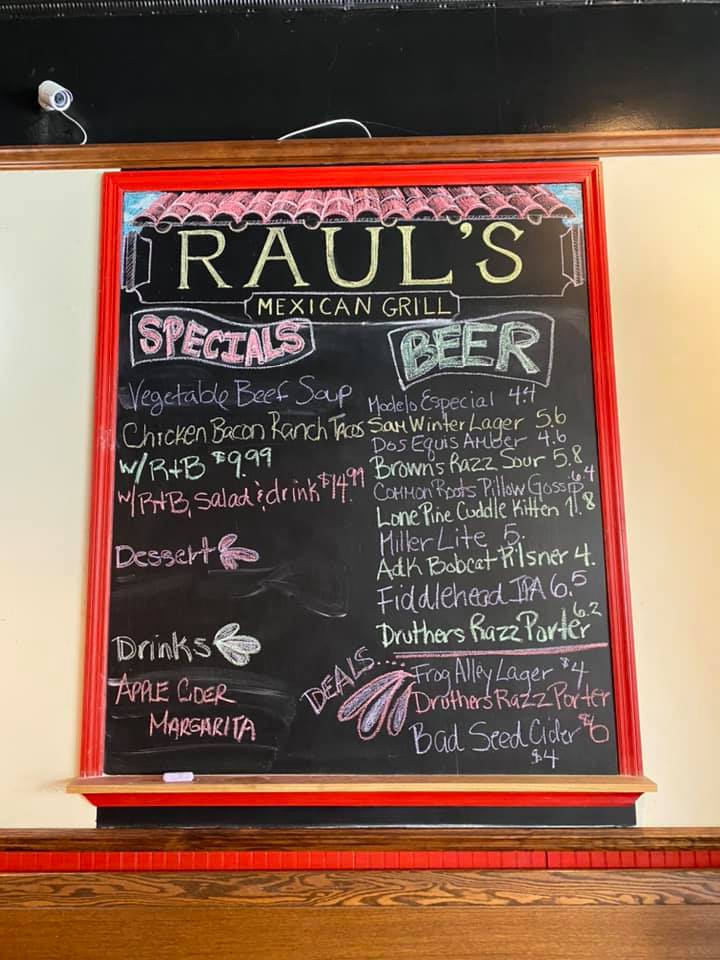 RAUL'S
MEXICAN GRILL
SPECIALS
Vegetable Beef Soup
Chicken Bacon Ranch Tacos
w/R+B $9.99
w/R+B, Salad & drink $14.99
Dessert
Drinks
APPLE CIDER
MARGARITA
BEER
Modelo Especial 4.4
SAM Winter Lager 5.6
Dos Equis Amber 4.6
Browns Razz Sour 5.8
Common Roots Pillow Gossip 6.4
Lone Pine Cuddle Kitten 11.8
Miller Lite 5.
Adk Bobcat Pilsner 4.
Fiddlehead IPA 6.5
Druthers Razz Porter 6.2
DEALS...
Frog Alley Lager $4
Druthers Razz Porter
$6
Bad Seed Cider
$4